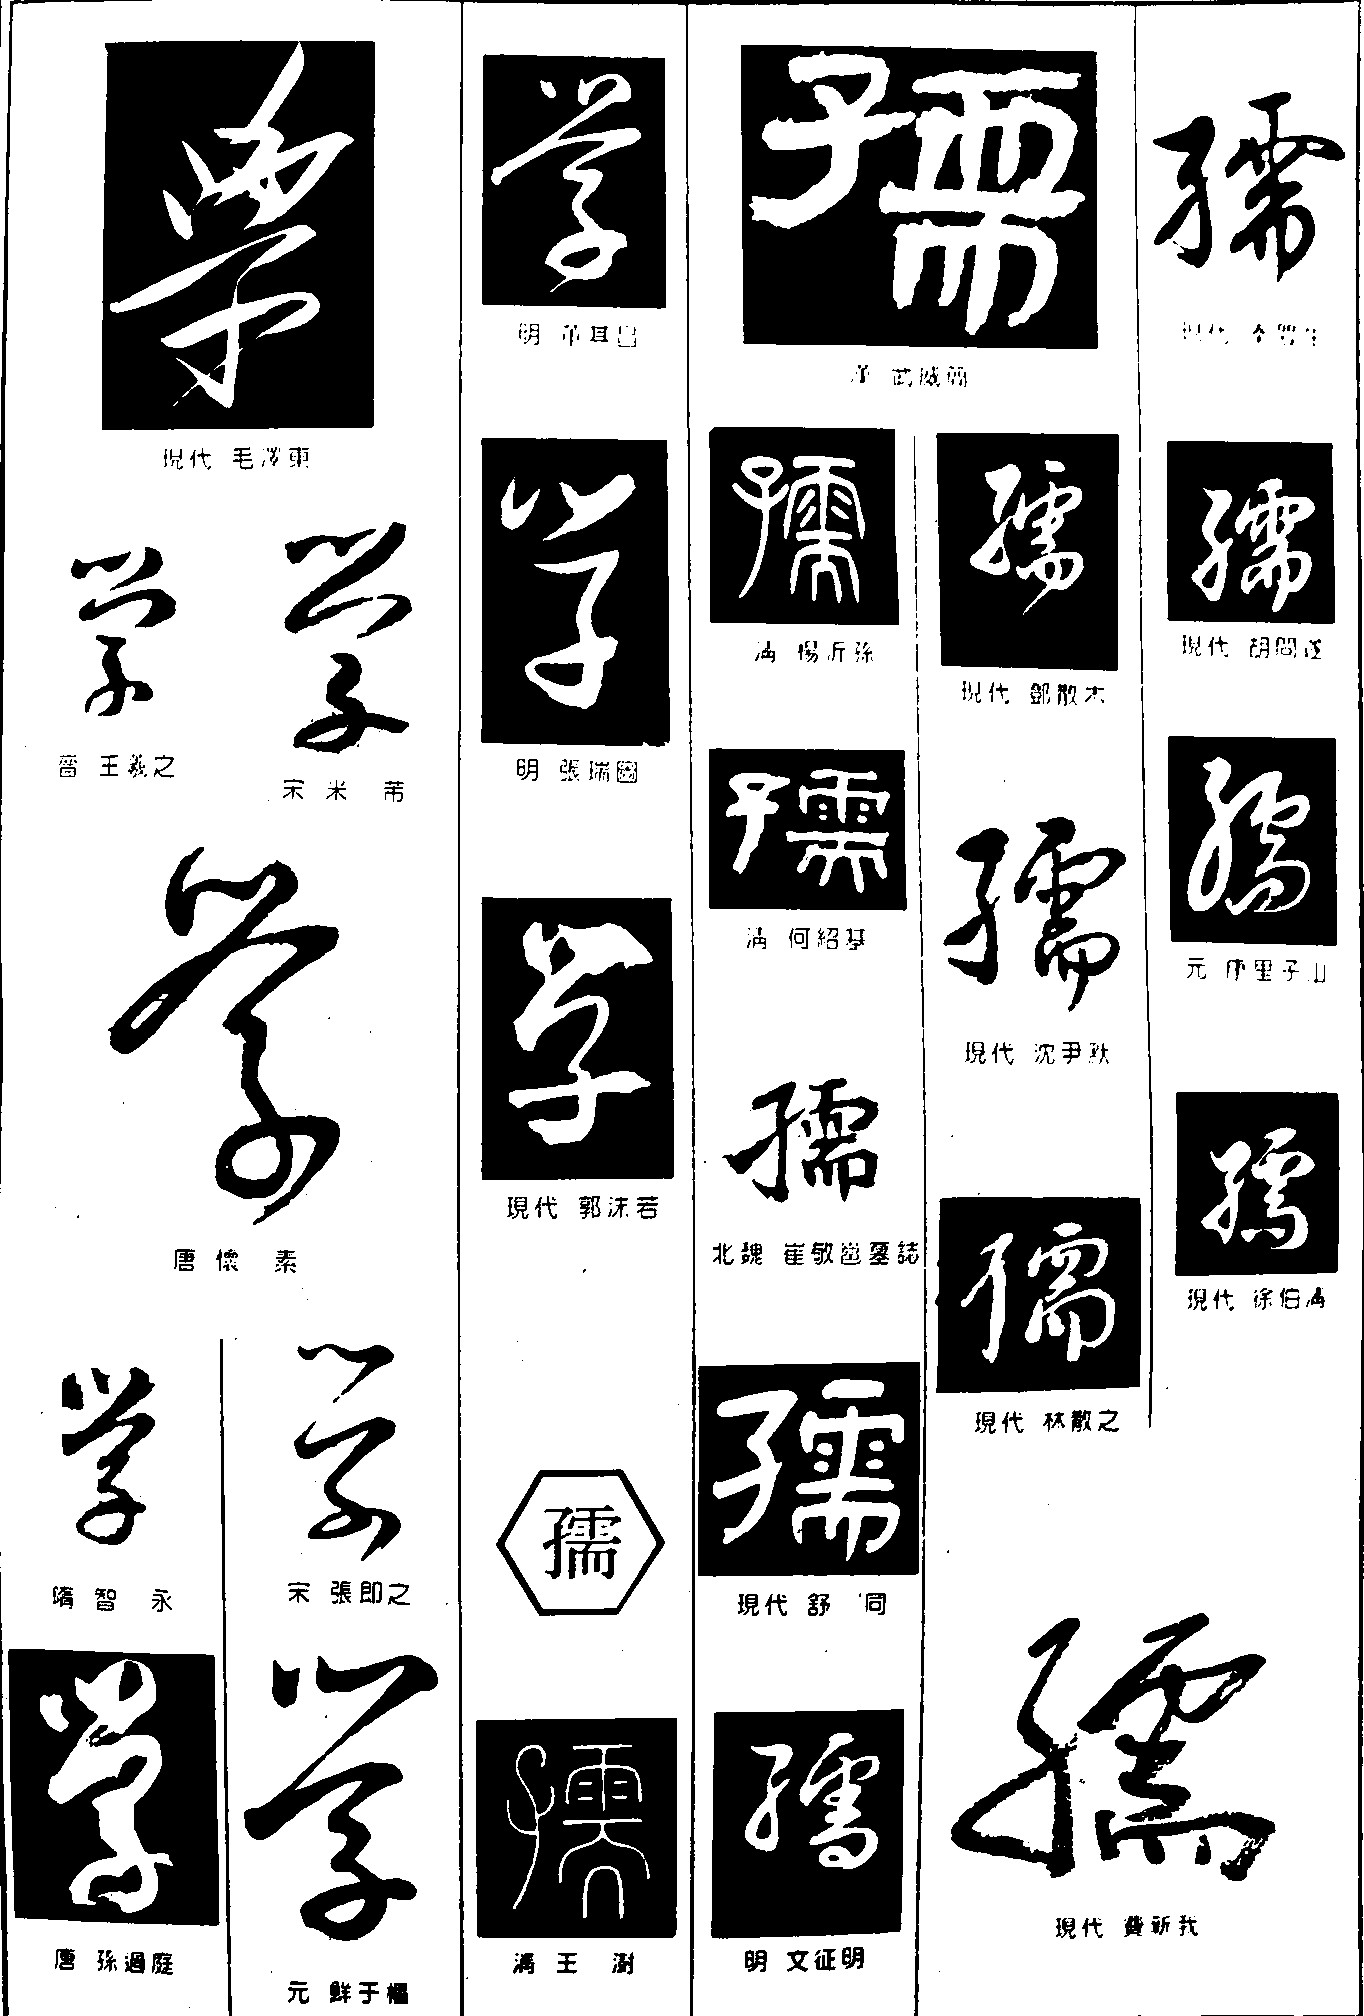 學
現代 毛澤東
學
晉 王羲之
學
宋 米 芾
學
唐 懷 素
學
隋 智 永
學
宋 張即之
學
唐 孫過庭
學
元 鮮于樞
學
學
明 張瑞圖
學
現代 郭沫若
孺
孺
清 王 澍
孺
漢 武威簡
孺
清 楊沂孫
孺
清 何紹基
孺
北魏 崔敬邕墓誌
孺
現代 舒 同
孺
明 文征明
孺
現代 鄧散木
孺
現代 沈尹默
孺
現代 林散之
孺
現代
孺
現代 胡問遂
孺
元 康里子山
孺
現代 徐伯清
孺
現代 費新我